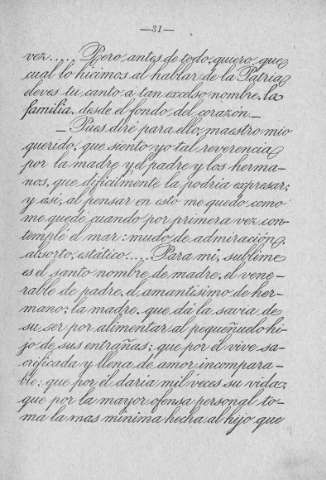 —31—
vez..... Pero, antes de todo, quiero que,
cual lo hicimos al hablar de la Patria,
eleves tu canto a tan excelso nombre, la
familia, desde el fondo del corazón.—
—Pues diré para ello, maestro mio
querido, que siento yo tal reverencia
por la madre y el padre y los herma-
nos, que dificilmente la podria expresar;
y asi, al pensar en esto me quedo como
me quedé cuando por primera vez con-
templé el mar: mudo de admiración,
absorto, estático..... Para mi, sublime
es el santo nombre de madre, el vene-
rable de padre, el amantisimo de her-
mano; la madre, que dá la savia de
su ser por alimentar al pequeñuelo hi-
jo de sus entrañas; que por él vive sa-
crificada y llena de amor incompara-
ble; que por él daria mil veces su vida;
que por la mayor ofensa personal to-
ma la mas minima hecha al hijo que